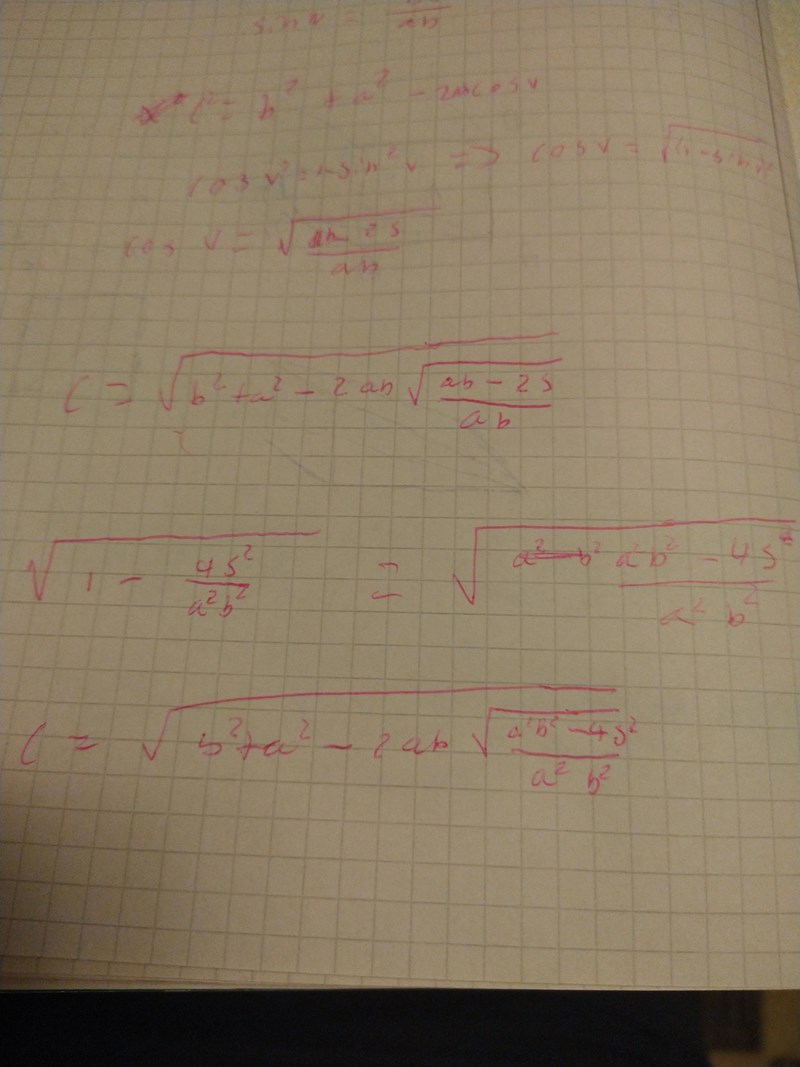 sin v = 2s/ab
c² = b² + a² - 2ab cos v
cos v² = 1 - sin² v => cos v = √(1 - sin² v)
cos v = √((ab - 2s)/ab)
C = √(b² + a² - 2ab √((ab - 2s)/ab))
√(1 - 4s²/(a²b²)) = √((a²b² - 4s²)/(a² b²))
C = √(b² + a² - 2ab √((a²b² - 4s²)/(a² b²)))